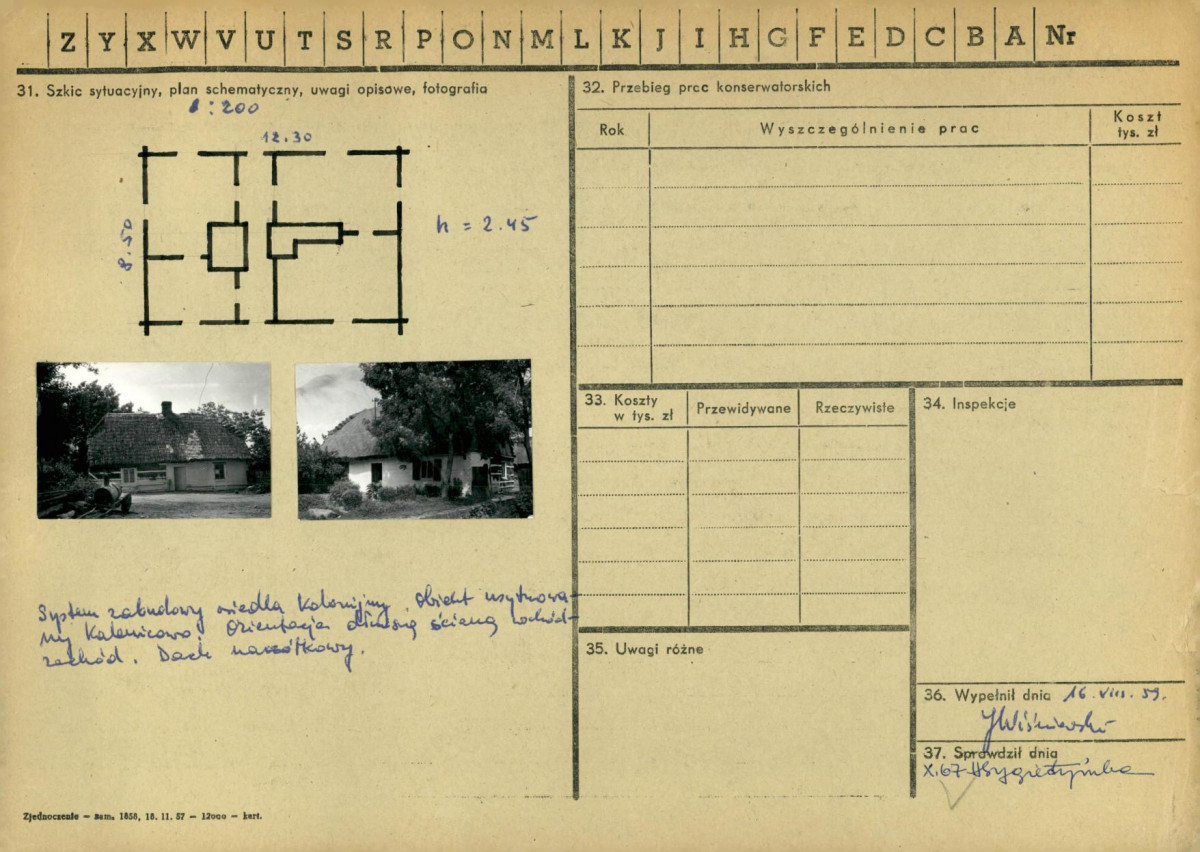 Z Y X W V U T S R P O N M L K J I H G F E D C B A Nr
31. Szkic sytuacyjny, plan schematyczny, uwagi opisowe, fotografia
1:200
12.30
8.50
h = 2.45
System zabudowy osiedla kolonijny. Obiekt usytuowa-
ny kalenicowo. Orientacja dłuższą ścianą wschód-
zachód. Dach naczółkowy.
Zjednoczenie — zam. 1858, 18. 11. 57 — 12000 — kart.
32. Przebieg prac konserwatorskich
Rok Wyszczególnienie prac Koszt
tys. zł
33. Koszty
w tys. zł
Przewidywane Rzeczywiste
34. Inspekcje
35. Uwagi różne
36. Wypełnił dnia 16. VIII. 59.
JWiśniewski
37. Sprawdził dnia
X.67